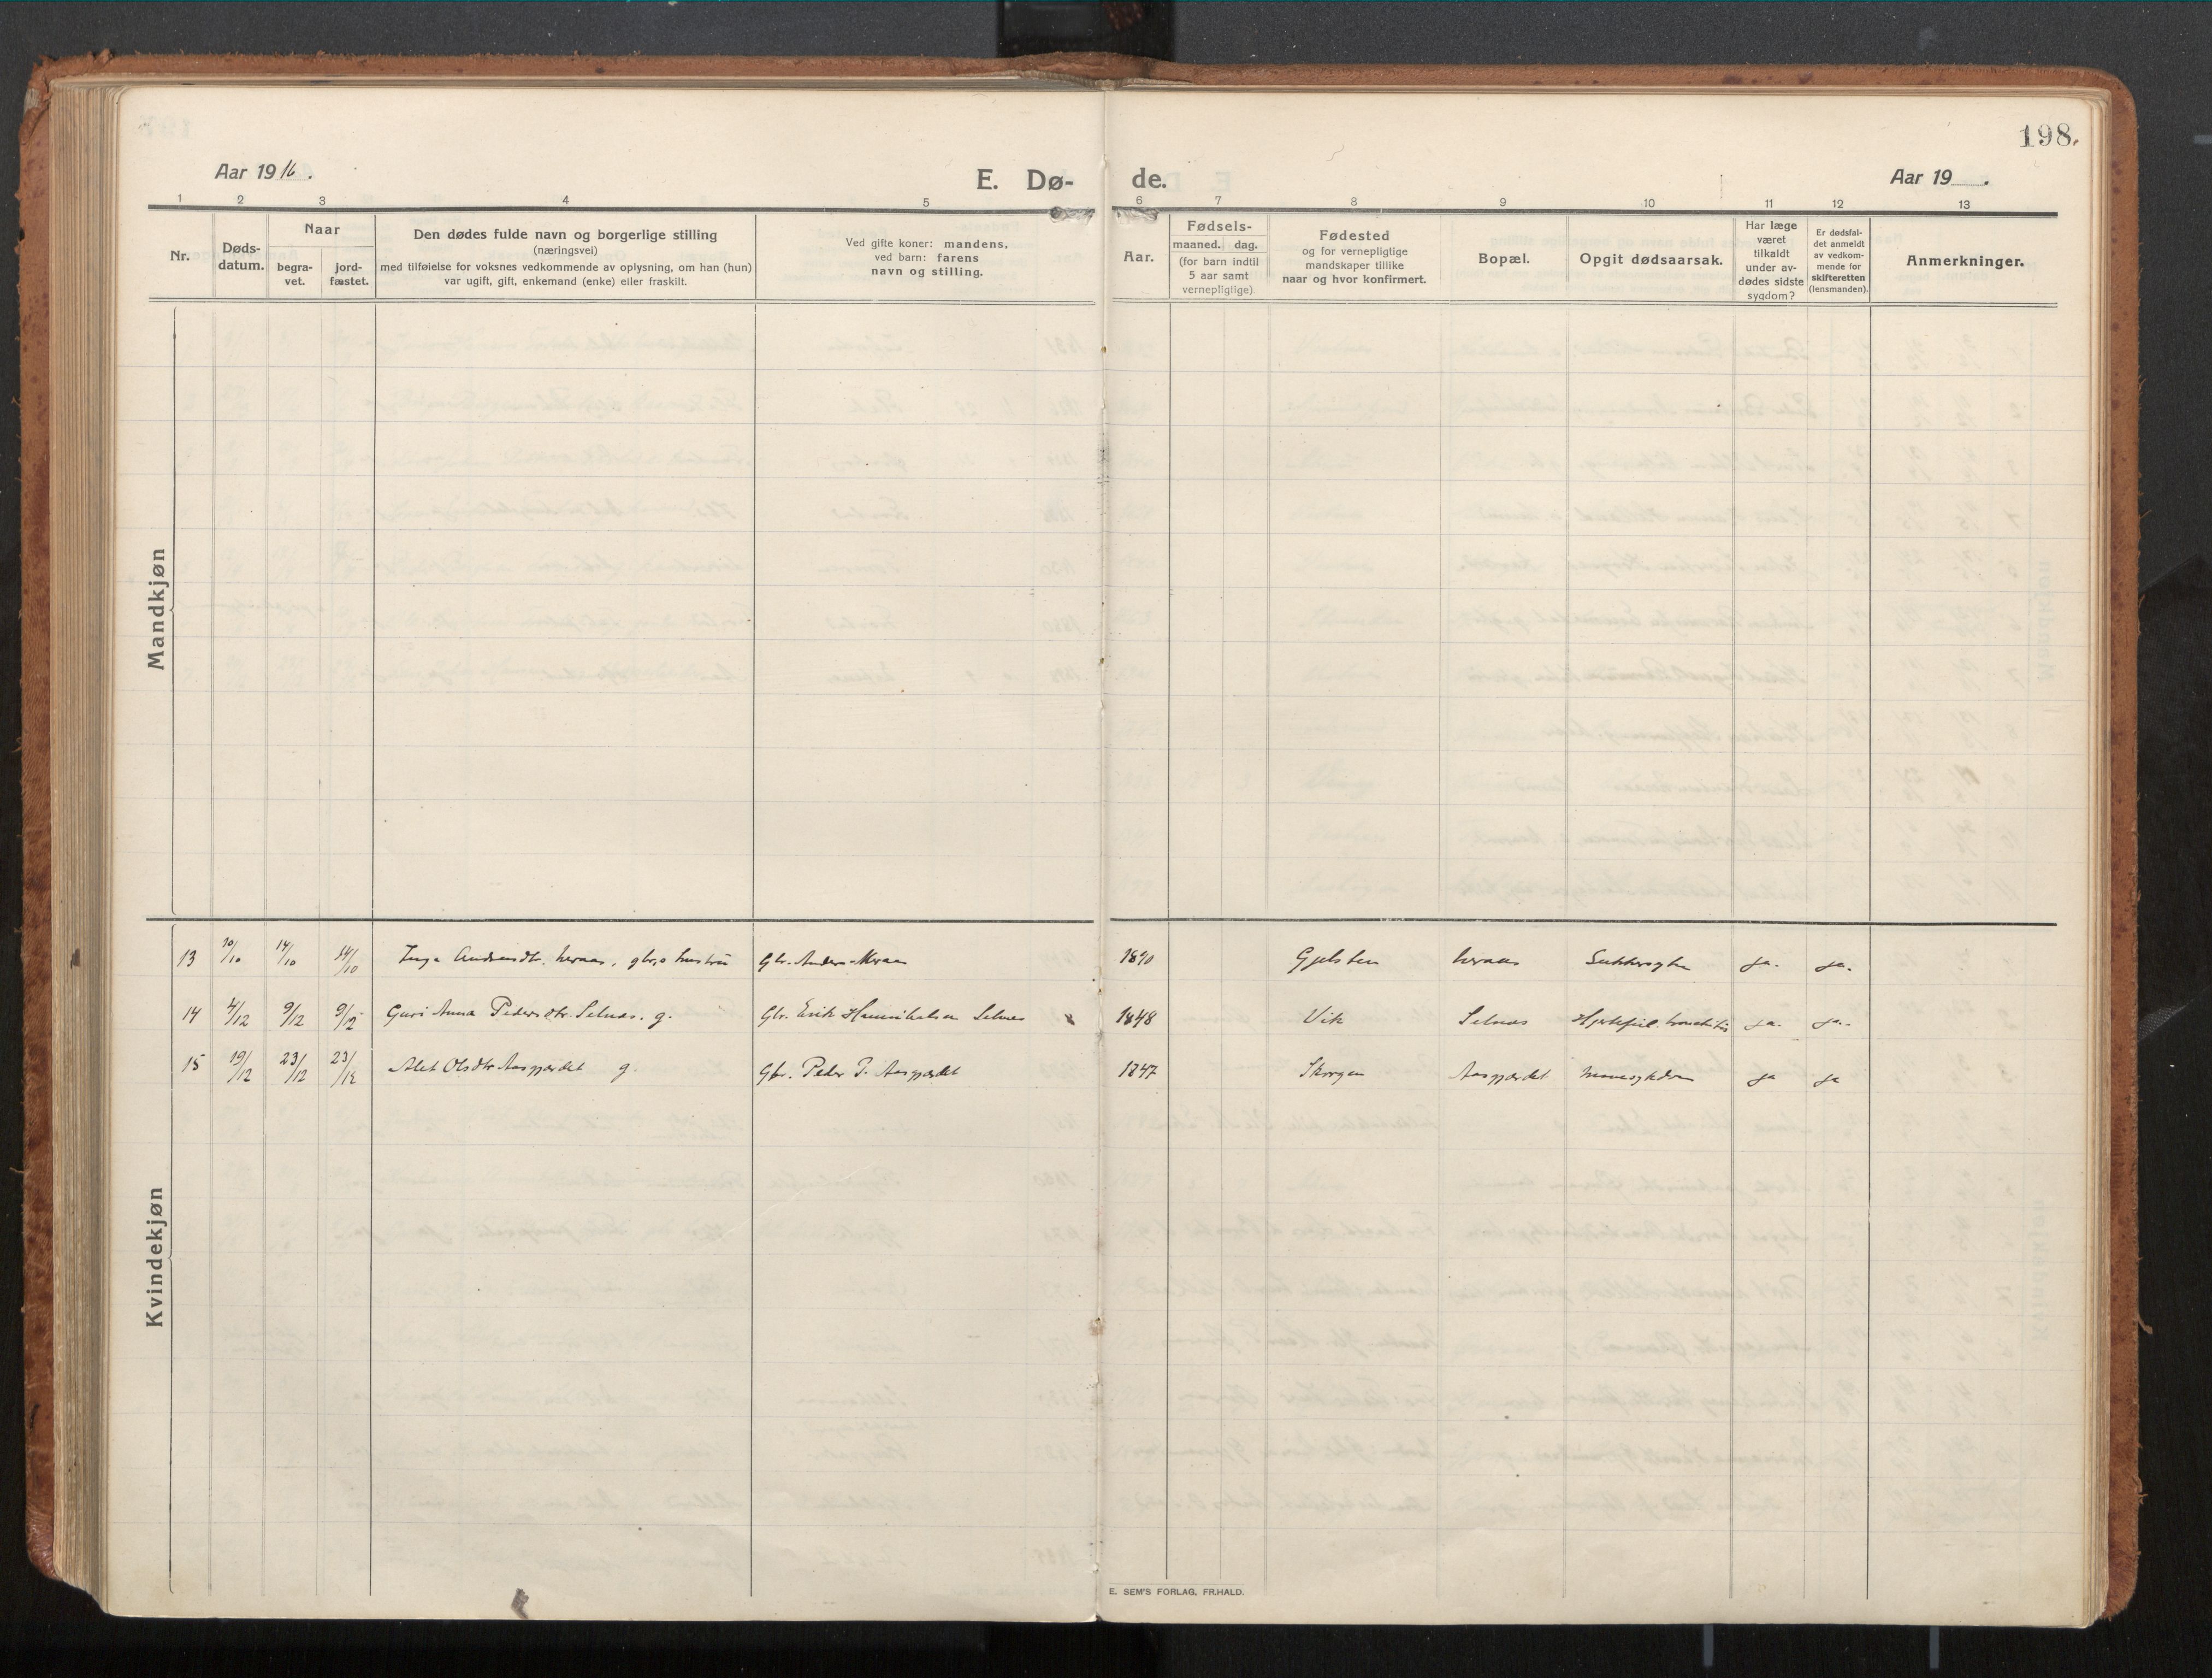 198.
Aar 1916.
E. Dø-
de.
Aar 19 .
1 2 3 4 5 6 7 8 9 10 11 12 13
Nr.
Døds-
datum.
Naar
begra-
vet.
jord-
fæstet.
Den dødes fulde navn og borgerlige stilling
(næringsvei)
med tilføielse for voksnes vedkommende av oplysning, om han (hun)
var ugift, gift, enkemand (enke) eller fraskilt.
Ved gifte koner: mandens,
ved barn: farens
navn og stilling.
Aar.
Fødsels-
maaned. dag.
(for barn indtil
5 aar samt
vernepligtige)
Fødested
og for vernepligtige
mandskaper tillike
naar og hvor konfirmert.
Bopæl.
Opgit dødsaarsak.
Har læge
været
tilkaldt
under av-
dødes sidste
sygdom?
Er dødsfal-
det anmeldt
av vedkom-
mende for
skifteretten
(lensmanden).
Anmerkninger.
Mandkjøn
Kvindekjøn
13 10/10 14/10 14/10 Inga 1890 Gjelsten Sukkersyke ja. ja.
14 4/12 9/12 9/12 Guri Anna Pedersdtr. Selnes. g. Gbr. Erik Selnes 1848 Vik Selnes ja. ja.
15 19/12 23/12 23/12 Olsdtr Aasgjærdet g. Gbr. Peder P. Aasgjærdet 1847 Skorgen Aasgjærdet ja ja
E. SEM'S FORLAG, FR.HALD.